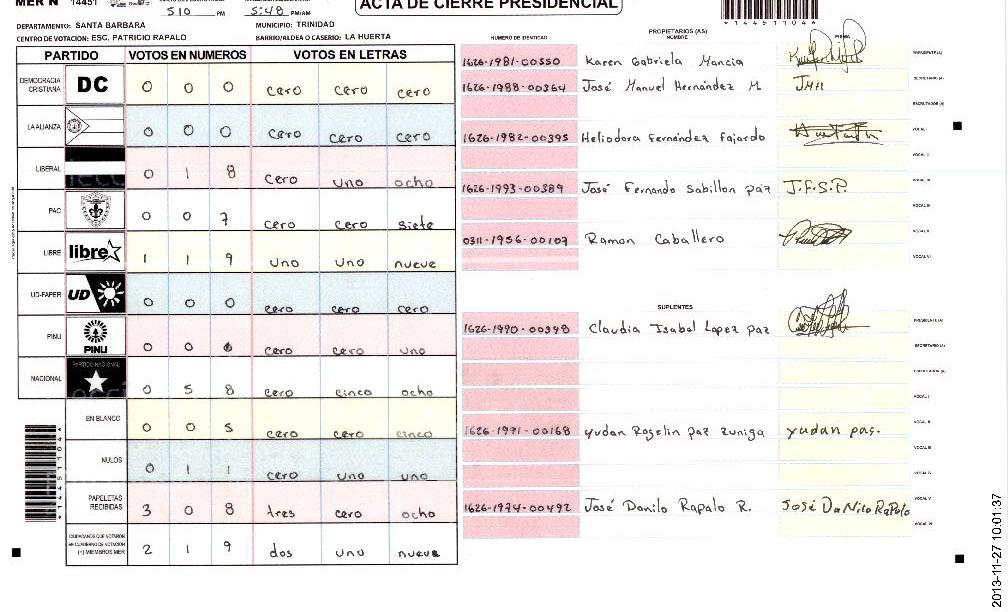 MER N 14451
ACTA DE CIERRE PRESIDENCIAL
510 PM 5:48 PM/AM
DEPARTAMENTO: SANTA BARBARA MUNICIPIO: TRINIDAD
CENTRO DE VOTACION: ESC. PATRICIO RAPALO BARRIO/ALDEA O CASERIO: LA HUERTA
PARTIDO VOTOS EN NUMEROS VOTOS EN LETRAS
DEMOCRACIA CRISTIANA DC 0 0 0 cero cero cero
LA ALIANZA 0 0 0 cero cero cero
LIBERAL 0 1 8 cero uno ocho
PAC 0 0 7 cero cero siete
LIBRE libre 1 1 9 uno uno nueve
UD-FAPER UD 0 0 0 cero cero cero
PINU PINU 0 0 cero cero uno
NACIONAL PARTIDO NACIONAL 0 5 8 cero cinco ocho
EN BLANCO 0 0 5 cero cero cinco
NULOS 0 1 1 cero uno uno
PAPELETAS RECIBIDAS 3 0 8 tres cero ocho
CIUDADANOS QUE VOTARON
EN CUADERNO DE VOTACION
(+) MIEMBROS MER 2 1 9 dos uno nueve
PROPIETARIOS (AS)
NUMERO DE IDENTIDAD NOMBRE FIRMA
1626-1981-00550 Karen Gabriela Mancia PRESIDENTE(A)
1626-1988-00364 José Manuel Hernández M. JMH SECRETARIO (A)
ESCRUTADOR (A)
1626-1982-00395 Heliodora Fernández Fajardo VOCAL I
VOCAL II
1626-1993-00389 José Fernando Sabillon paz J.F.S.P. VOCAL III
VOCAL IV
0311-1956-00107 Ramon Caballero VOCAL V
VOCAL VI
SUPLENTES
1626-1990-00398 Claudia Isabal Lopez paz PRESIDENTE (A)
SECRETARIO (A)
ESCRUTADOR (A)
VOCAL I
1626-1971-00168 yudan Rogelin paz zuniga yudan pas. VOCAL II
VOCAL III
VOCAL IV
1626-1974-00492 José Danilo Rapalo R. José DaNilo RaPalo VOCAL V
VOCAL VI
*1445110 4*
2013-11-27 10:01:37